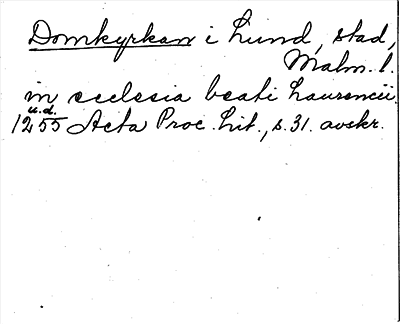 Domkyrkan i Lund, stad,
Malm. l.
in ecclesia beati Laurencii.
u.d.
1255 Acta Proc. Lit., s. 31. avskr.